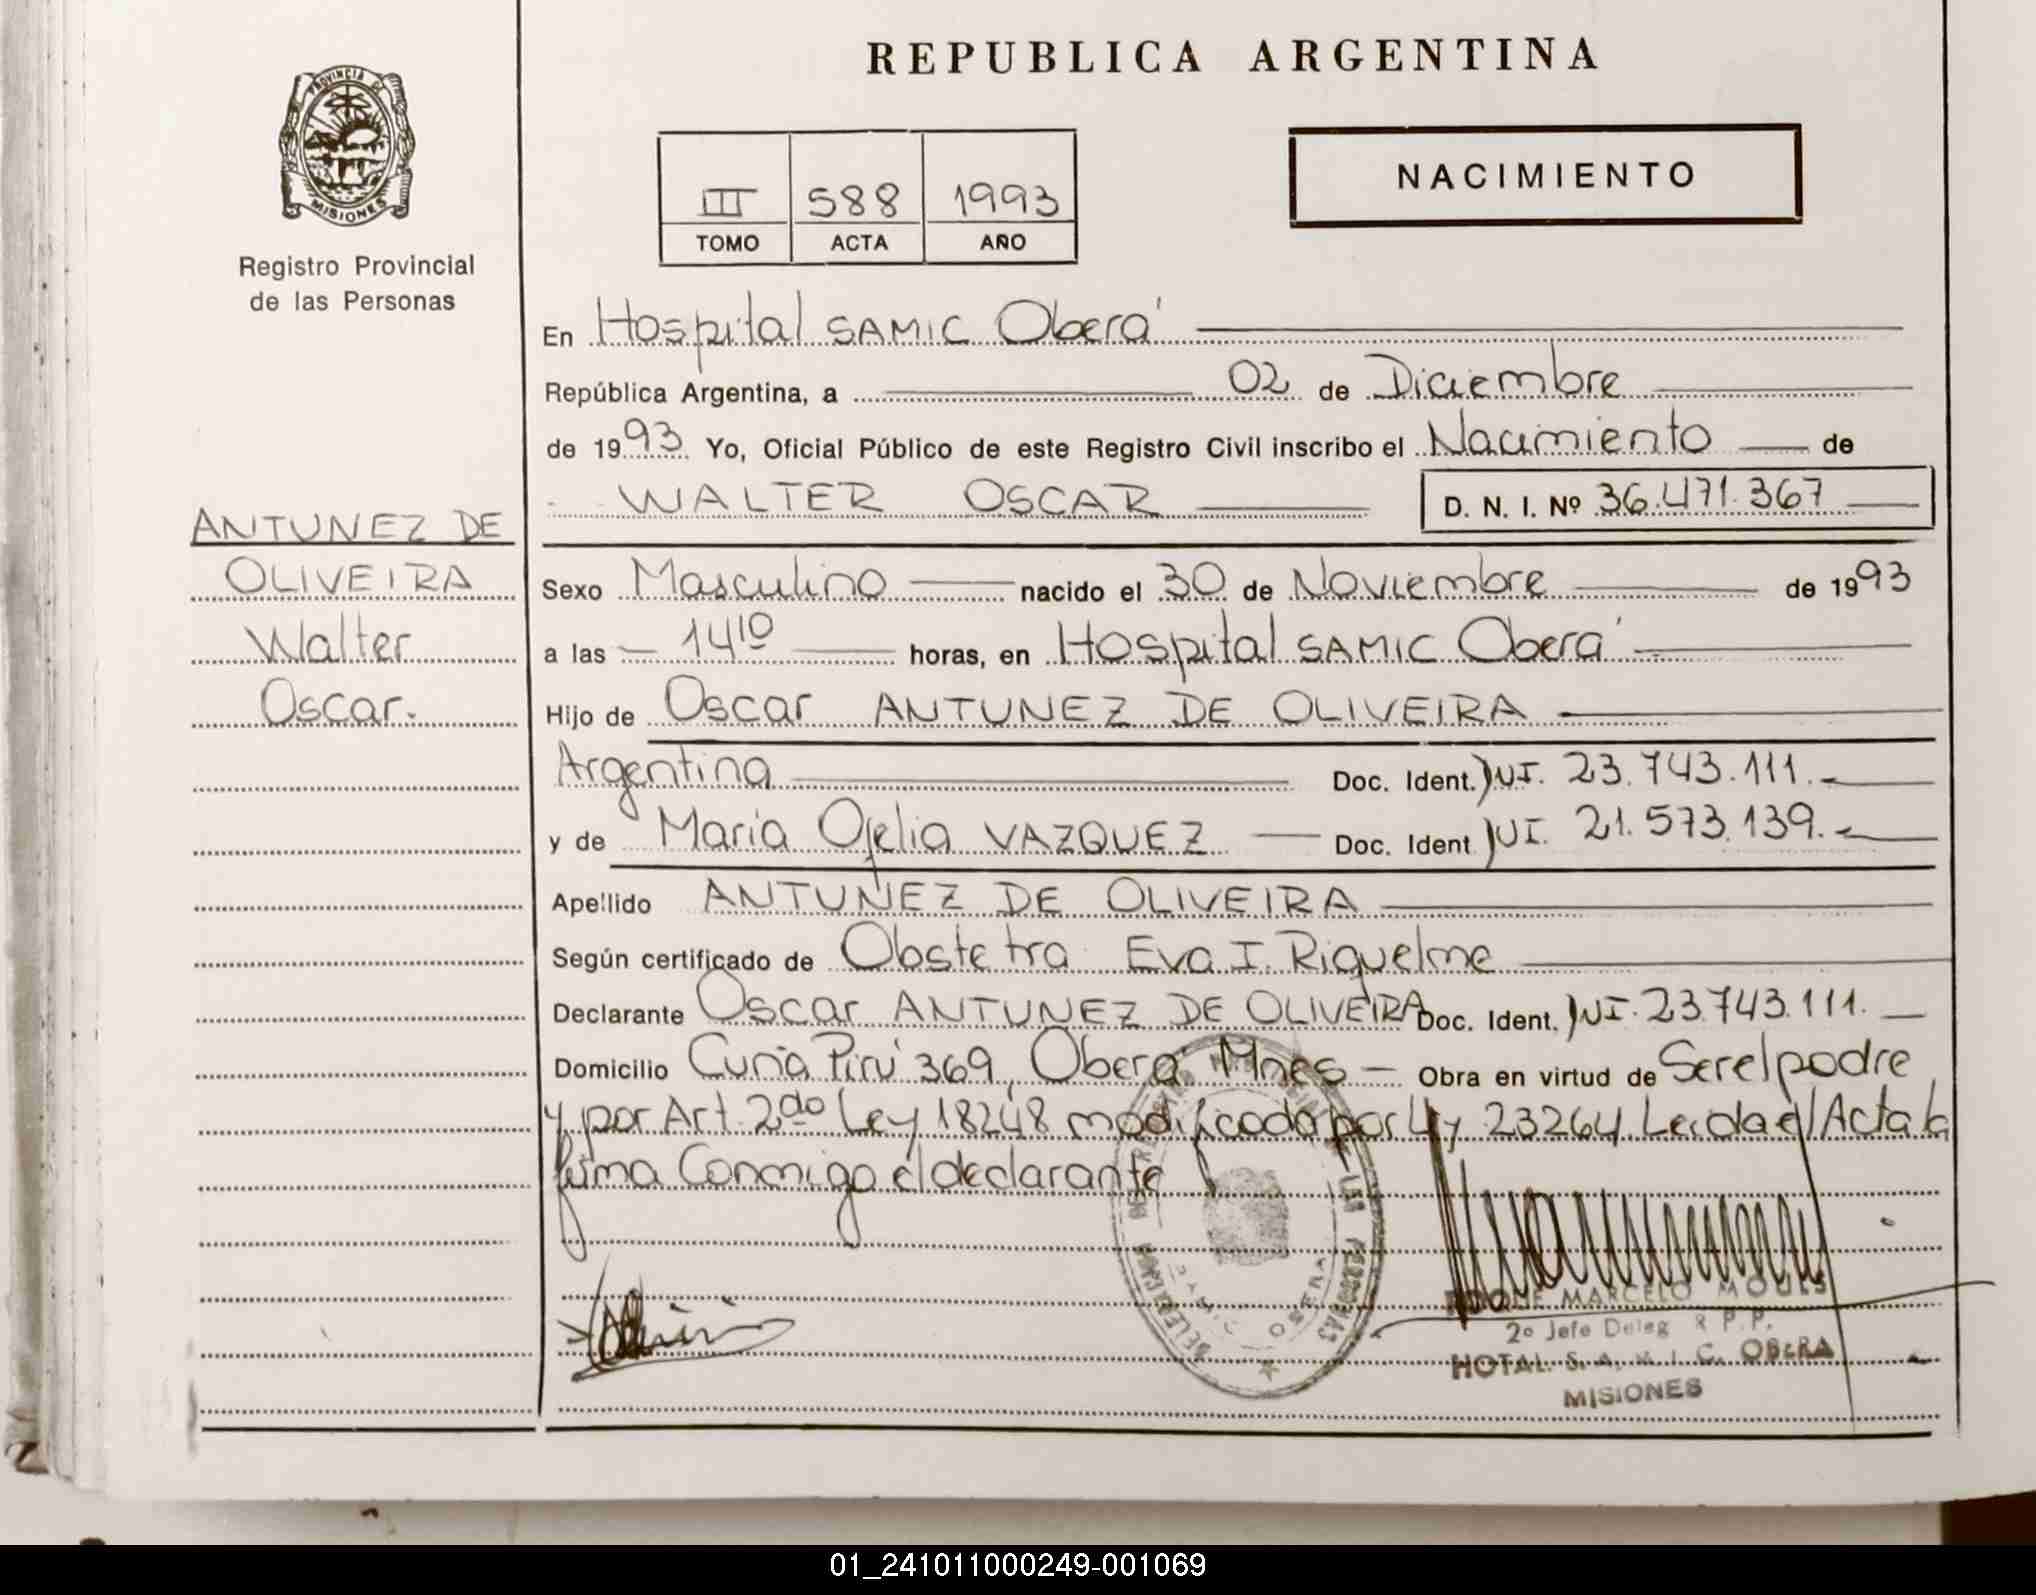 REPUBLICA ARGENTINA
PROVINCIA DE
MISIONES
Registro Provincial
de las Personas
III 588 1993
TOMO ACTA AÑO
NACIMIENTO
En Hospital SAMIC Oberá
República Argentina, a 02 de Diciembre
de 1993 Yo, Oficial Público de este Registro Civil inscribo el Nacimiento de
WALTER OSCAR D. N. I. Nº 36.471.367
ANTUNEZ DE
OLIVEIRA
Walter
Oscar.
Sexo Masculino nacido el 30 de Noviembre de 1993
a las 14 10 horas, en Hospital SAMIC Oberá
Hijo de Oscar ANTUNEZ DE OLIVEIRA
Argentina Doc. Ident. DNI. 23.743.111.
y de Maria Ofelia VAZQUEZ Doc. Ident DNI. 21.573.139.
Apellido ANTUNEZ DE OLIVEIRA
Según certificado de Obstetra Eva I. Riquelme
Declarante Oscar ANTUNEZ DE OLIVEIRA Doc. Ident. DNI. 23.743.111.
Domicilio Cuña Pirú 369, Oberá Mnes - Obra en virtud de Ser el padre
y por Art. 2do Ley 18248 modificada por Ley 23264. Leida el Acta la
firma Conmigo el declarante
ROQUE MARCELO
2º Jefe Deleg R P.P.
HOTAL. S. A. M. I. C. OBERA
MISIONES
01_241011000249-001069